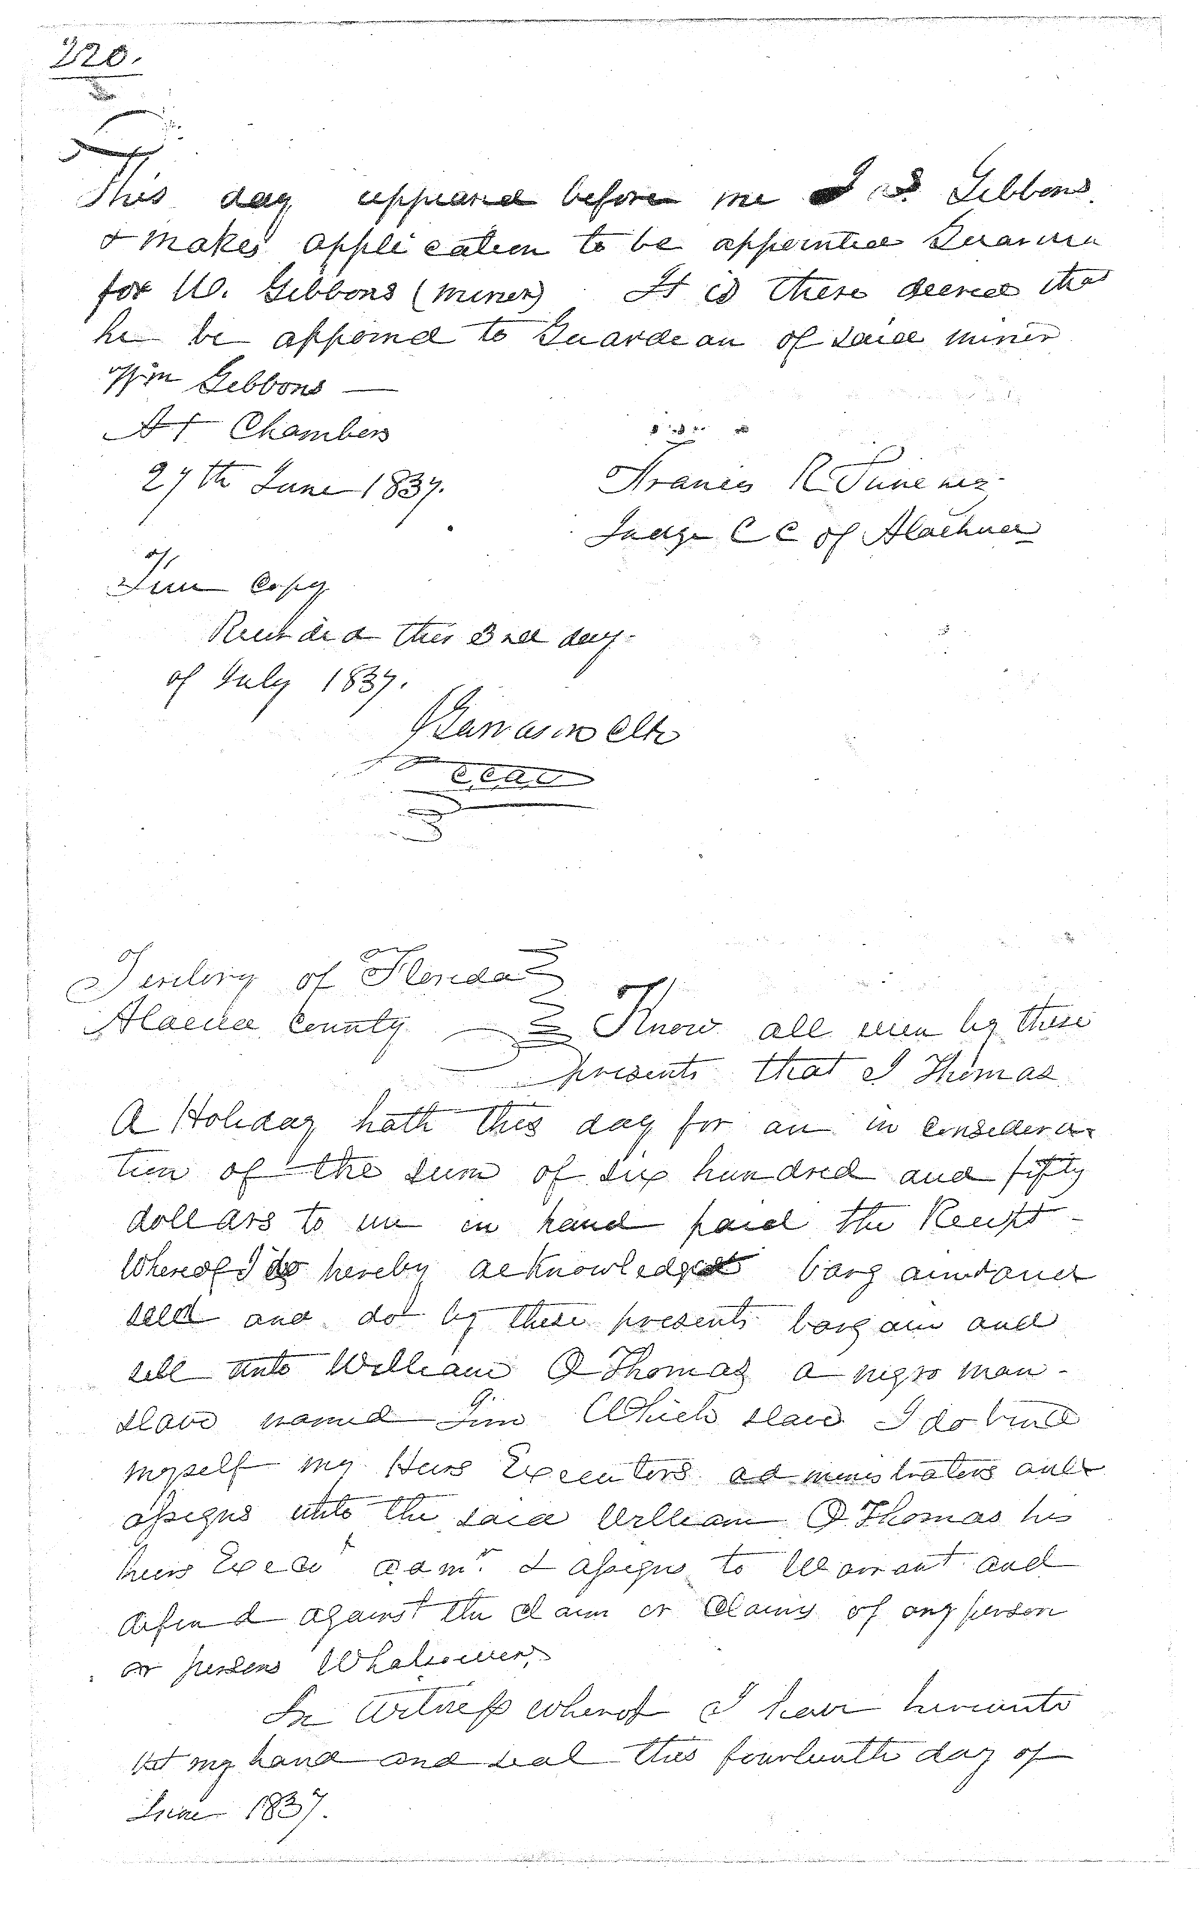 220.
This day appeared before me J S. Gibbons.
& makes application to be appointed Guardian
for W. Gibbons (minor) It is there decreed that
he be appoind to Guardean of said minor
Wm Gibbons —
At Chambers
27th June 1837.
Francis R
Judge C C of Alachua
True Copy
Recorded this 3rd day
of July 1837.
Clk
C.C.A.C
Territory of Florida
Alachua County Know all men by these
presents that I Thomas
A Holiday hath this day for an in considera-
tion of the sum of six hundred and fifty
dollars to me in hand paid the Receipt -
Whereof I do hereby acknowledge bargained and
sold and do by these presents bargain and
sell unto William O Thomas a negro man -
slave named Jim Which slave I do bind
myself my Heirs Executors administrators and
assigns unto the said William O Thomas his
heirs Execr adm.r & assigns to Warrant and
defend against the claim or Claims of any person
or persons Whatsoever,
In Witness whereof I have hereunto
set my hand and seal this fourteenth day of
June 1837.